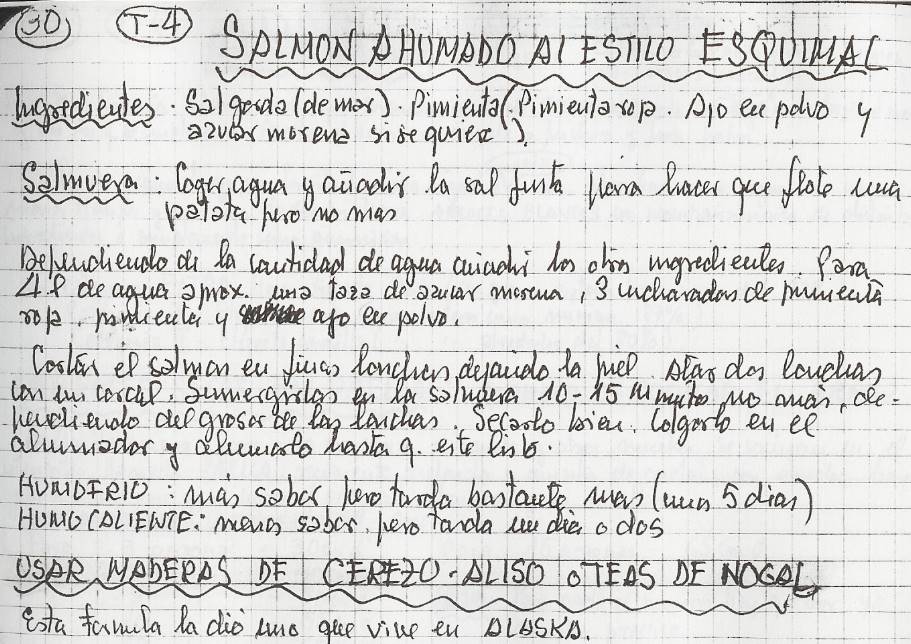 30 T-4 SALMON AHUMADO AL ESTILO ESQUIMAL
Ingredientes. Sal gorda (de mar). Pimienta (Pimienta roja. Ajo en polvo y
azucar morena si se quiere).
Salmuera: Coger agua y añadir la sal justa para hacer que flote una
patata pero no mas
Dependiendo de la cantidad de agua añadir los otros ingredientes. Para
4 l de agua aprox. una taza de azucar morena, 3 cucharadas de pimienta
roja, pimienta y ajo en polvo.
Cortar el salmon en finas lonchas, dejando la piel. Atar dos lonchas
con un cordel. Sumergirlas en la salmuera 10-15 minutos no más, de-
pendiendo del grosor de las lonchas. Secarlo bien. Colgarlo en el
ahumador y ahumarlo hasta q. este listo.
HUMO FRIO: más sabor pero tarda bastante mas (unos 5 dias)
HUMO CALIENTE: menos sabor, pero tarda un dia o dos
USAR MADERAS DE CEREZO-ALISO O TEAS DE NOGAL
Esta formula la dio uno que vive en ALASKA.